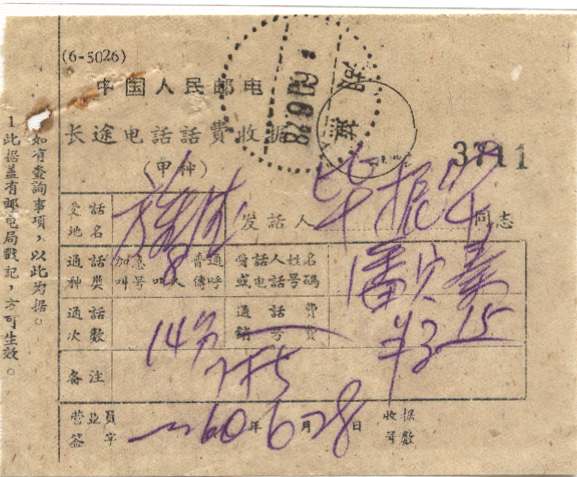 (6-5026)
中国人民邮电
长途电话話費收据
(甲种)
3711
受話地名
发話人
同志
通話种类
加急 普通
叫号 叫人 傳呼
受話人姓名或电話号碼
通話次数
14分
通話費
銷号費
¥3.15
备注
营业員签字
60年6月28日
收据号数
1 此据盖有邮电局戳記,方可生效。
如有查詢事項,以此为据。